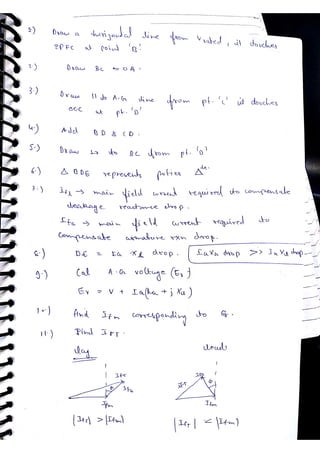 1) Draw a horizontal line from Vrated, it touches
ZPFC at point 'B'
2) Draw BC = OA.
3) Draw || to A.G line from pt. 'C' it touches
OCC at pt. 'D'
4) Add BD & CD.
5.) Draw ⊥ to BC from pt. 'D'
6.) Δ BDE represents potier Δ
7.) → main field current required to compensate
leakage reactance drop.
→ main field current required to
compensate armature rxn drop.
8.) DE = Ia Xl drop.
9.) Cal A.G voltage (Er)
Er = V + Ia(Ra + j Xl)
10) And Ifm corresponding to Er
11) Find Ift.
lag lead
Ift Ift
Ifa
Ifm Ifm
|Ift| > |Ifm| |Ift| < |Ifm|